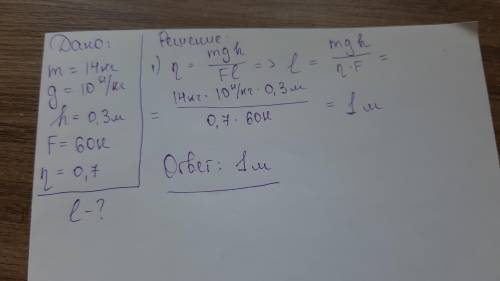 Дано:
m = 14кг
g = 10 Н/кг
h = 0,3м
F = 60Н
η = 0,7
l - ?
Решение:
1) η = mgh / Fl => l = mgh / η·F =
= 14кг · 10 Н/кг · 0,3м / 0,7 · 60Н = 1м
Ответ: 1м